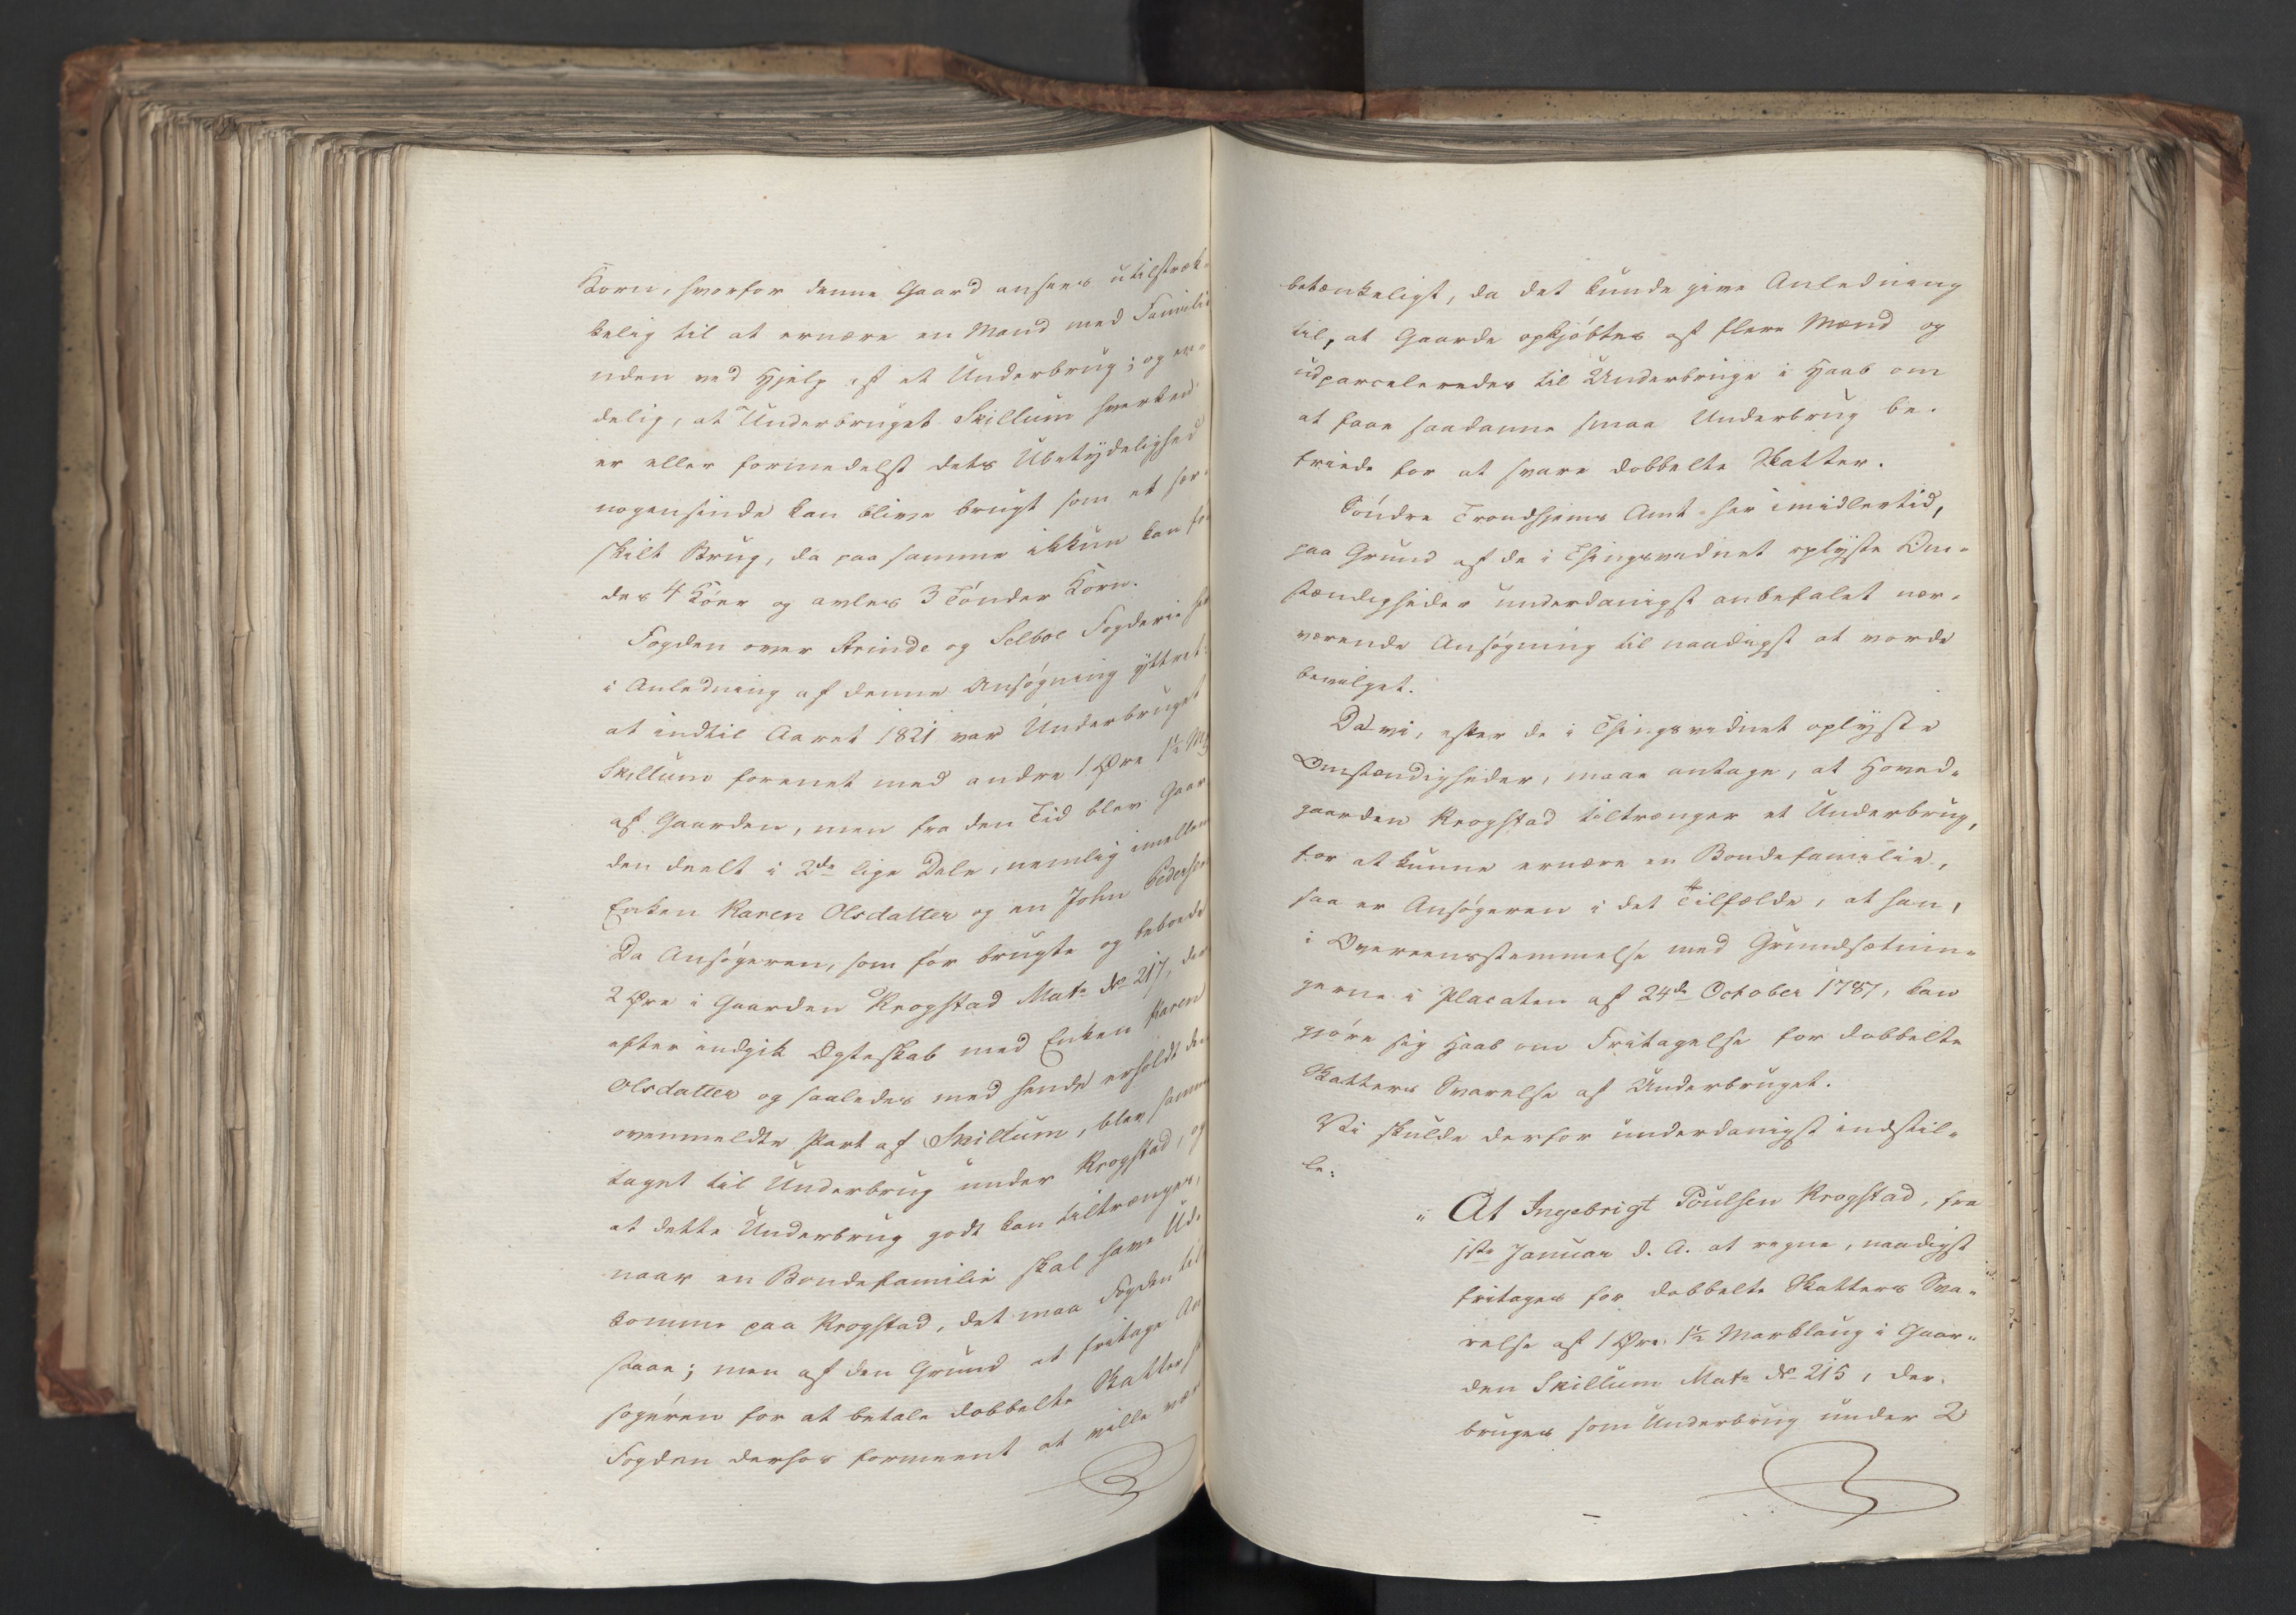 Korn, hvorfor denne Gaard ansees utilstræk-
kelig til at ernære en Mand med Familie
uden ved Hjelp af et Underbrug; og en-
delig, at Underbruget Skillum hverken
er eller formedelst dets Ubetydelighed
nogensinde kan blive brugt som et sær-
skilt Brug, da paa samme ikkun kan fø-
des 4 Köer og avles 3 Tönder Korn.
Fogden over Strinde og Selboe Fogderie har
i Anledning af denne Ansøgning yttret:
at indtil Aaret 1821 var Underbruget
Skillum forenet med andre 1 Øre 1½ Mg
af Gaarden, men fra den Tid blev Gaar-
den deelt i 2de lige Dele, nemlig imellem
Enken Karen Olsdatter og en John Pedersen
Da Ansøgeren, som før brugte og beboede
2 Øre i Gaarden Krogstad Matr No 217, der-
efter indgik Ægteskab med Enken Karen
Olsdatter og saaledes med hende erholdt den
ovenmeldte Part af Skillum, blev samme
taget til Underbrug under Krogstad, og
at dette Underbrug godt kan tiltrænges,
naar en Bondefamilie skal have Ud-
komme paa Krogstad, det maa Fogden til-
staae; men af den Grund at fritage An-
søgeren for at betale dobbelte Skatter har
Fogden derhos formeent at ville være
betænkeligt, da det kunde give Anledning
til, at Gaarde opkjöbtes af flere Mænd og
udparceleredes til Underbruge i Haab om
at faae saadanne smaa Underbrug be-
friede for at svare dobbelte Skatter.
Söndre Trondhjems Amt har imidlertid,
paa Grund af de i Thingsvidnet oplyste Om-
stændigheder underdanigst anbefalet nær-
værende Ansøgning til naadigst at vorde
bevilget.
Da vi, efter de i Thingsvidnet oplyste
Omstændigheder, maae antage, at Hoved-
gaarden Krogstad tiltrænger et Underbrug,
for at kunne ernære en Bondefamilie,
saa er Ansøgeren i det Tilfælde, at han,
i Overeensstemmelse med Grundsætnin-
gerne i Placaten af 24de October 1787, kan
gjöre sig Haab om Fritagelse for dobbelte
Skatters Svarelse af Underbruget.
Vi skulde derfor underdanigst indstil-
le:
"At Ingebrigt Poulsen Krogstad, fra
1ste Januar d. A. at regne, naadigst
fritages for dobbelte Skatters Sva-
relse af 1 Øre 1½ Marklaug i Gaar-
den Skillum Matr No 215, der
bruges som Underbrug under 2